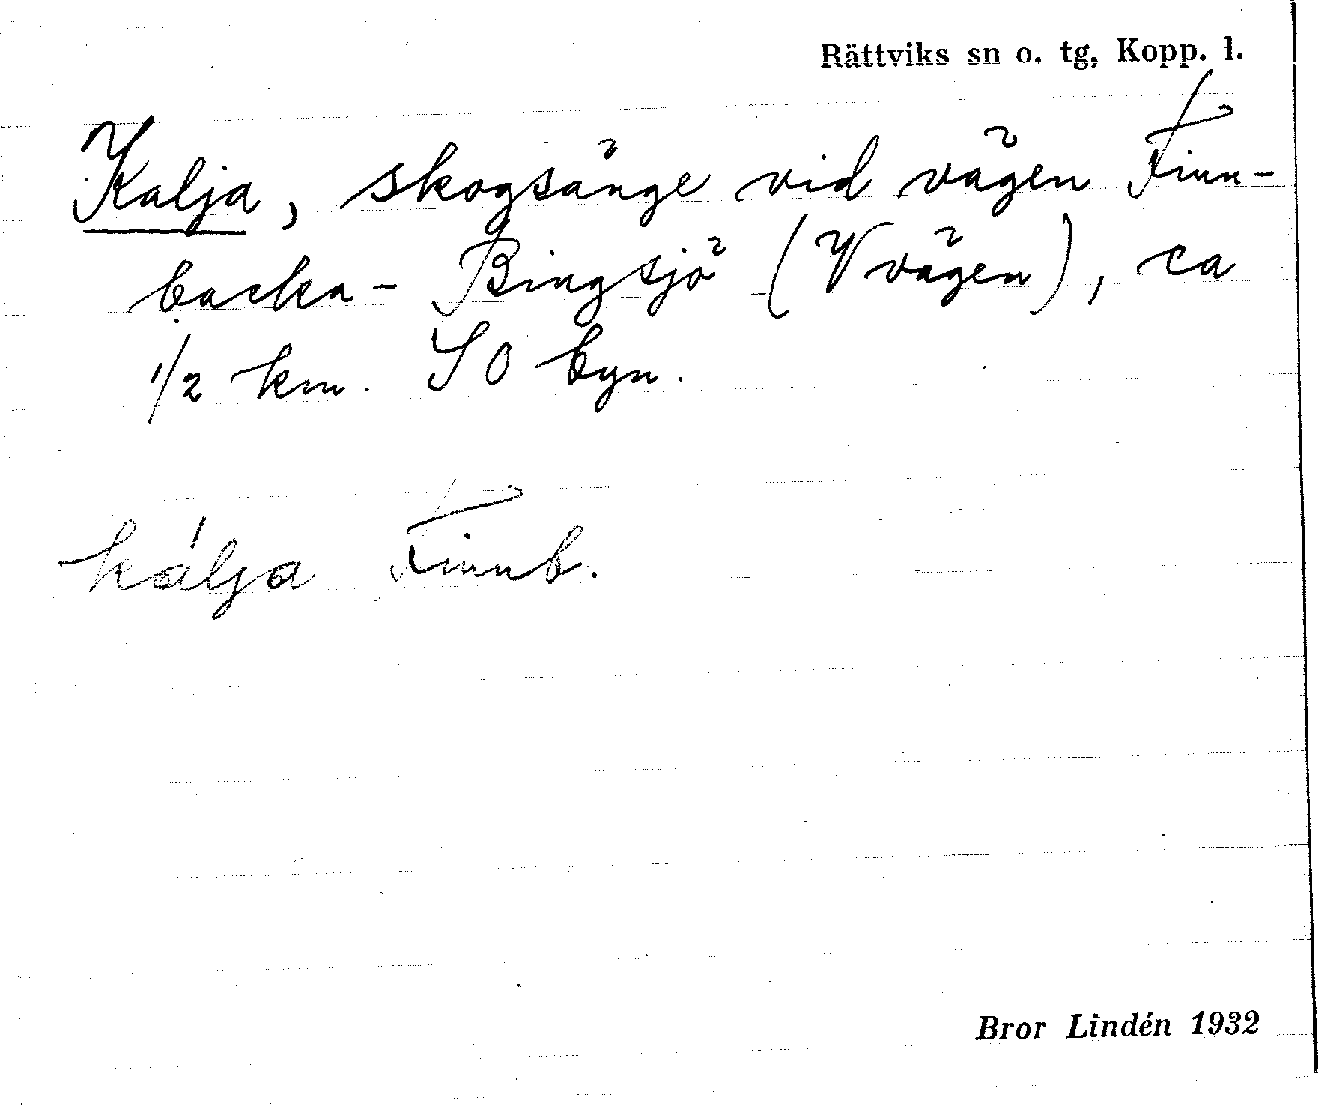 Rättviks sn o. tg, Kopp. l.
Kalja, skogsänge vid vägen Finn-
backa - Bingsjö (V vägen), ca
1/2 km. SO byn.
kálja Finnb.
Bror Lindén 1932